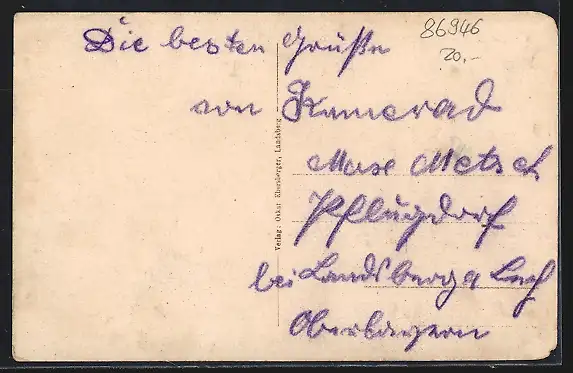 86946
20,-
Die besten Grüße
von Kamerad
Max Metsch
Pflugdorf
bei Landsberg a Lech
Oberbayern
Verlag: Oskar Ebersberger, Landsberg